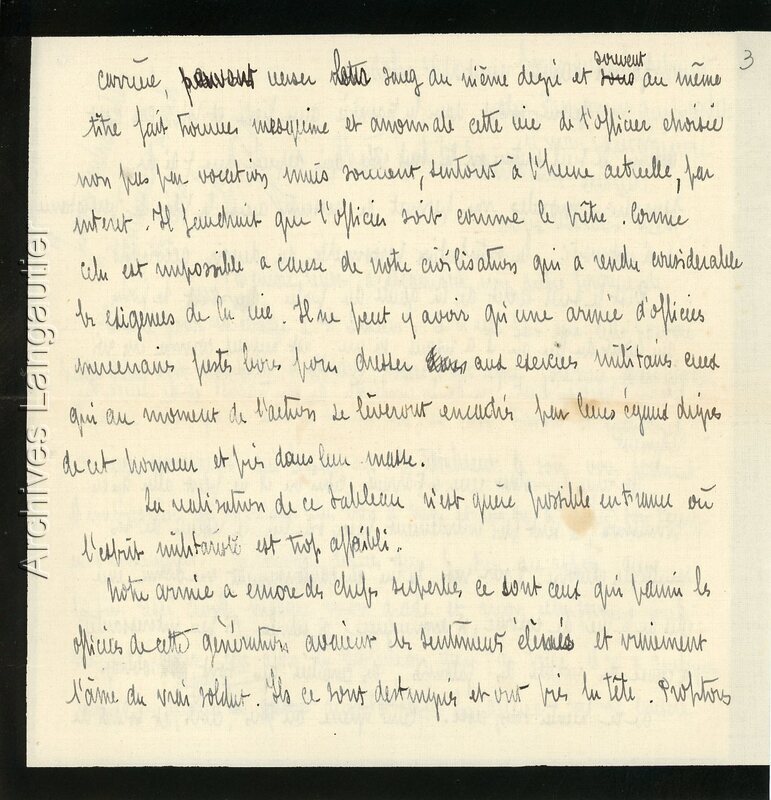 3
carrière, peuvent verser leur sang au même degré et souvent au même
titre fait trouver mesquine et anormale cette vie de l'officier choisie
non pas par vocation mais souvent, surtout à l'heure actuelle, par
interet. Il faudrait que l'officier soit comme le prêtre. Comme
cela est impossible a cause de notre civilisation qui a rendu considerable
les exigences de la vie. Il ne peut y avoir qu'une armée d'officiers
mercenaires justes bons pour dresser aux exercices militaires ceux
qui au moment de l'action se lèveront encadrés par leurs égaux dignes
de cet honneur et pris dans leur masse.
La realisation de ce tableau n'est guere possible en France où
l'esprit militariste est trop affaibli.
Notre armée a encore des chefs superbes ce sont ceux qui parmi les
officiers de cette génération avaient les sentiments élevés et vraiement
l'âme du vrai soldat. Ils ce sont distingues et ont pris la tête. Profitons
Archives Langautier